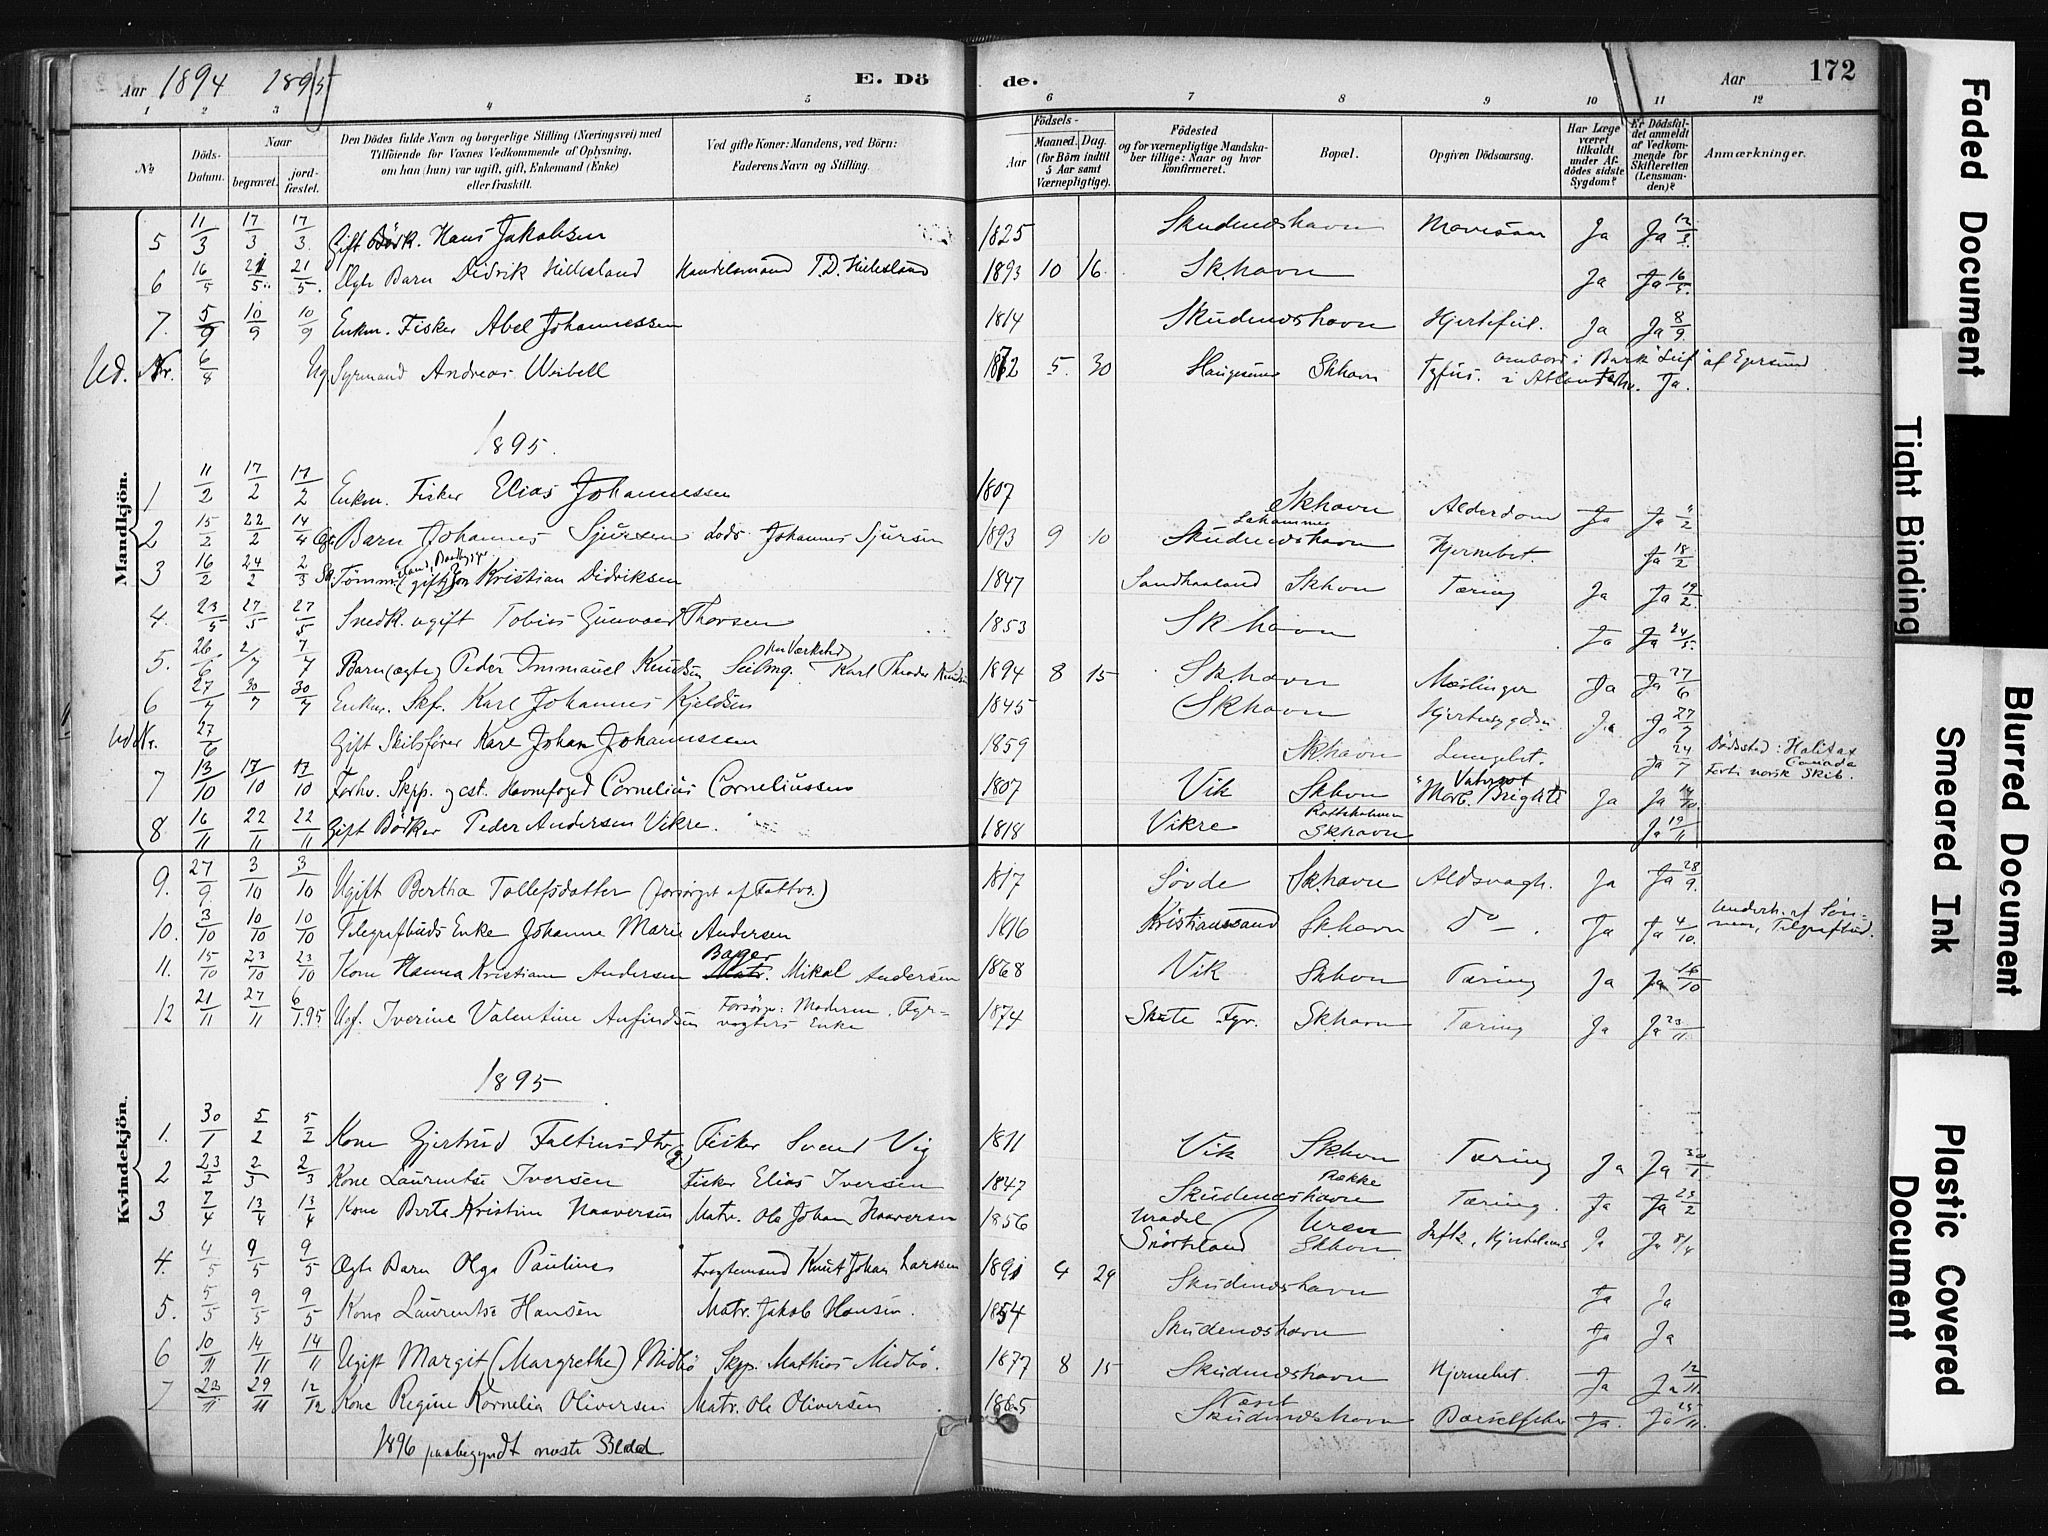 Aar 1894 1895 E. Döde. Aar 172
1 2 3 4 5 6 7 8 9 10 11 12
No
Döds-Datum.
Naar
begravet.
jord-fæstet.
Den Dödes fulde Navn og borgerlige Stilling (Næringsvei) med
Tilföiende for Voxnes Vedkommende af Oplysning,
om han (hun) var ugift, gift, Enkemand (Enke)
eller fraskilt.
Ved gifte Koner: Mandens, ved Börn:
Faderens Navn og Stilling.
Födsels-
Aar
Maaned. Dag.
(for Börn indtil
5 Aar samt
Værnepligtige).
Födested
og for værnepligtige Mandska-
ber tillige: Naar og hvor
konfirmeret.
Bopæl.
Opgiven Dödsaarsag.
Har Læge
været
tilkaldt
under Af-
dödes sidste
Sygdom?
Er Dödsfal-
det anmeldt
af Vedkom-
mende for
Skifteretten
(Lensman-
den)?
Anmærkninger.
Mandkjön.
5 11/3 17/3 17/3 Gift Hans Jakobsen 1825 Skudeneshavn Ja Ja 12/3
6 16/5 21/5 21/5 Ægte Barn Didrik Hillesland Handelsmand T.D. Hillesland 1893 10 16 Sk.havn Ja Ja 16/5
7. 5/9 10/9 10/9 Enkm. Fisker Abel Johannessen 1814 Skudeneshavn Hjertefeil. Ja Ja 8/9
Ud. Nr. 6/8 Ug Styrmand Andreas Weibell 1872 5. 30 Haugesund Skhavn Tyfus. ombord i Bark "Leif" af Egersund i Atlanterhv. Ja.
1895.
1 11/2 17/2 17/2 Enkm. Fisker Elias Johannessen 1807 Skhavn Alderdom Ja Ja 11/2
2 15/2 22/2 14/4 Ægte Barn Johannes Sjursen Lods Johannes Sjursen 1893 9 10 Skudeneshavn Hjernebet. Ja 18/2
3 16/2 24/2 2/3 Tömm. (gift) Jon Kristian Didriksen 1847 Sandhaaland Skhavn Tæring Ja Ja 19/2
4. 23/5 27/5 27/5 Snedk. ugift Tobias Gunvær Thorsen 1853 Skhavn Ja Ja 24/5
5. 26/6 2/7 7/7 Barn (ægte) Peder Immanuel Knudsen Seilmg. Karl Theodor Knudsen 1894 8 15 Skhavn Mæslinger Ja Ja 27/6
6 27/7 30/7 30/7 Enkm. Skf. Karl Johannes Kjeldsen 1845 Skhavn Hjertesygdom Ja Ja 27/7
Ud Nr. 27/6 Gift Skibsförer Karl Johan Johannessen 1859 Skhavn Lungebet. Ja 24/7 Dödssted: Halifax Canada
7 13/10 17/10 17/10 Forhv. Skpp. og cst. Havnefoged Cornelius Corneliussen 1807 Vik Skhavn Vatersot Morb. Brightii Ja Ja 14/10
8 16/11 22/11 22/11 Gift Bödker Peder Andersen Vikre. 1818 Vikre Skhavn Ja 19/11
Kvindekjön.
9. 27/9 3/10 3/10 Ugift Bertha Tollefsdatter (forsörget af Fattvs.) 1817 Sövde Skhavn Aldsvagh. Ja Ja 28/9
10. 3/10 10/10 10/10 Telegrafbuds Enke Johanne Marie Andersen 1816 Kristianssand Skhavn Do Ja Ja 4/10. Underh. af Sön-nen, Telegrafbud.
11. 15/10 23/10 23/10 Kone Hanna Kristiane Andersen Bager Matr. Mikal Andersen 1868 Vik Skhavn Tæring Ja Ja 16/10
12 21/11 27/11 6/1.95 Ugf. Iverine Valentine Anfindsen Forsörger: Moderen, Fyr-vogters Enke 1874 Skute Fyr. Skhavn Tæring Ja Ja 23/11
1895
1. 30/1 5/2 5/2 Kone Gjertrud Faltinsdtr. Fisker Svend Vig 1811 Vik Skhavn Tæring Ja Ja 30/1
2 23/2 2/3 2/3 Kone Laurentse Iversen Fisker Elias Iversen 1847 Skudeneshavn Tæring. Ja Ja 23/2
3 7/4 13/4 13/4 Kone Berta Kristine Haaversen Matr. Ole Johan Haaversen 1856 Snörteland Skhavn Ja Ja 8/4
4. 4/5 9/5 9/5 Ægte Barn Olga Pauline Fragtemand Knut Johan Larssen 1891 4 29 Skudeneshavn Ja Ja
5. 5/5 9/5 9/5 Kone Laurentse Hansen Matr. Jakob Hansen. 1854 Skudeneshavn Ja Ja
6 10/11 14/11 14/11 Ugift Margit (Margrethe) Midbö Skpp. Mathias Midbö. 1877 8 15 Skudeneshavn Hjernebet. Ja Ja 12/11
7 23/11 29/11 12/12 Kone Regine Kornelia Oliversen Matr. Ole Oliversen 1865 Skudeneshavn Barselfeber Ja. Ja 25/11.
1896 paabegyndt næste Blad
Faded Document
Tight Binding
Blurred Document
Smeared Ink
Plastic Covered Document